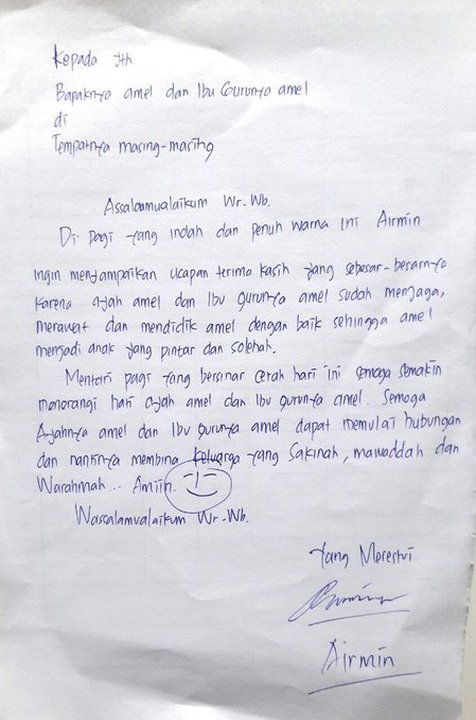 Kepada Yth
Bapaknya amel dan Ibu Gurunya amel
di
Tempatnya masing-masing
Assalaamualaikum Wr. Wb.
Di pagi yang indah dan penuh warna ini Airmin
ingin menyampaikan ucapan terima kasih yang sebesar-besarnya
karena ayah amel dan Ibu gurunya amel sudah menjaga,
merawat dan mendidik amel dengan baik sehingga amel
menjadi anak yang pintar dan solehah.
Mentari pagi yang bersinar cerah hari ini semoga semakin
menerangi hari ayah amel dan Ibu gurunya amel. Semoga
Ayahnya amel dan Ibu gurunya amel dapat memulai hubungan
dan nantinya membina keluarga yang sakinah, mawaddah dan
Warahmah... Amiin.
Wassalamualaikum Wr. Wb.
Yang Merestui
Airmin